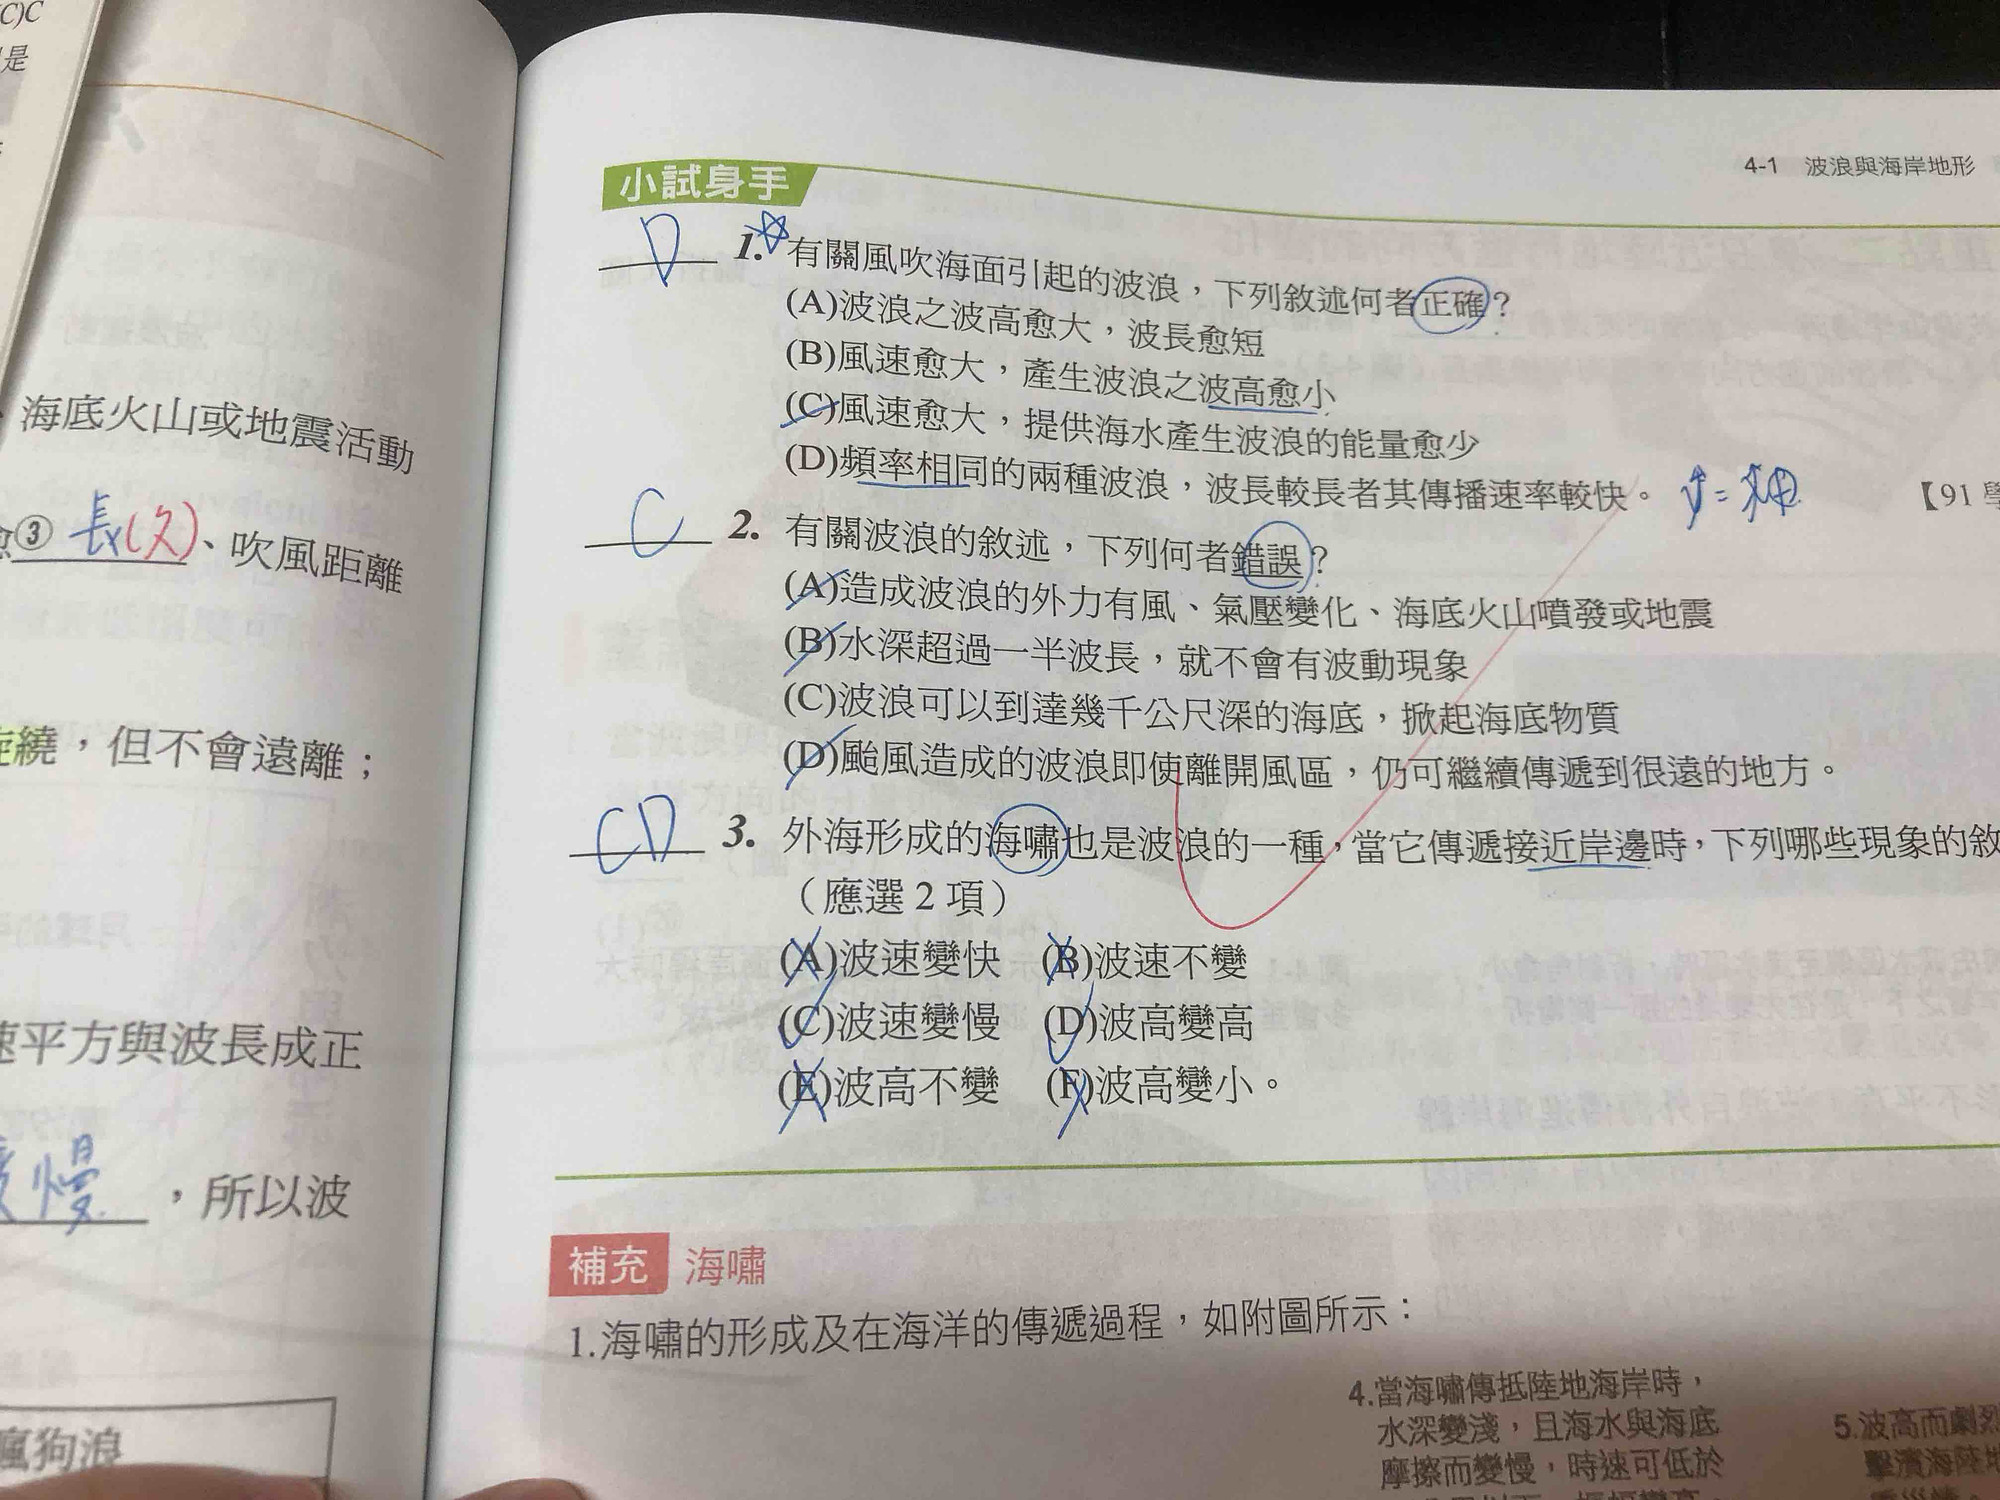 C)C
是
海底火山或地震活動
③ 長(久)、吹風距離
繞，但不會遠離；
平方與波長成正
慢，所以波
瘋狗浪
4-1 波浪與海岸地形
小試身手
D 1.☆有關風吹海面引起的波浪，下列敘述何者正確？
(A)波浪之波高愈大，波長愈短
(B)風速愈大，產生波浪之波高愈小
(C)風速愈大，提供海水產生波浪的能量愈少
(D)頻率相同的兩種波浪，波長較長者其傳播速率較快。
【91
C 2. 有關波浪的敘述，下列何者錯誤？
(A)造成波浪的外力有風、氣壓變化、海底火山噴發或地震
(B)水深超過一半波長，就不會有波動現象
(C)波浪可以到達幾千公尺深的海底，掀起海底物質
(D)颱風造成的波浪即使離開風區，仍可繼續傳遞到很遠的地方。
CD 3. 外海形成的海嘯也是波浪的一種，當它傳遞接近岸邊時，下列哪些現象的敘
（應選 2 項）
(A)波速變快 (B)波速不變
(C)波速變慢 (D)波高變高
(E)波高不變 (F)波高變小。
補充 海嘯
1.海嘯的形成及在海洋的傳遞過程，如附圖所示：
4.當海嘯傳抵陸地海岸時，
水深變淺，且海水與海底
摩擦而變慢，時速可低於
5.波高而劇烈
擊濱海陸地